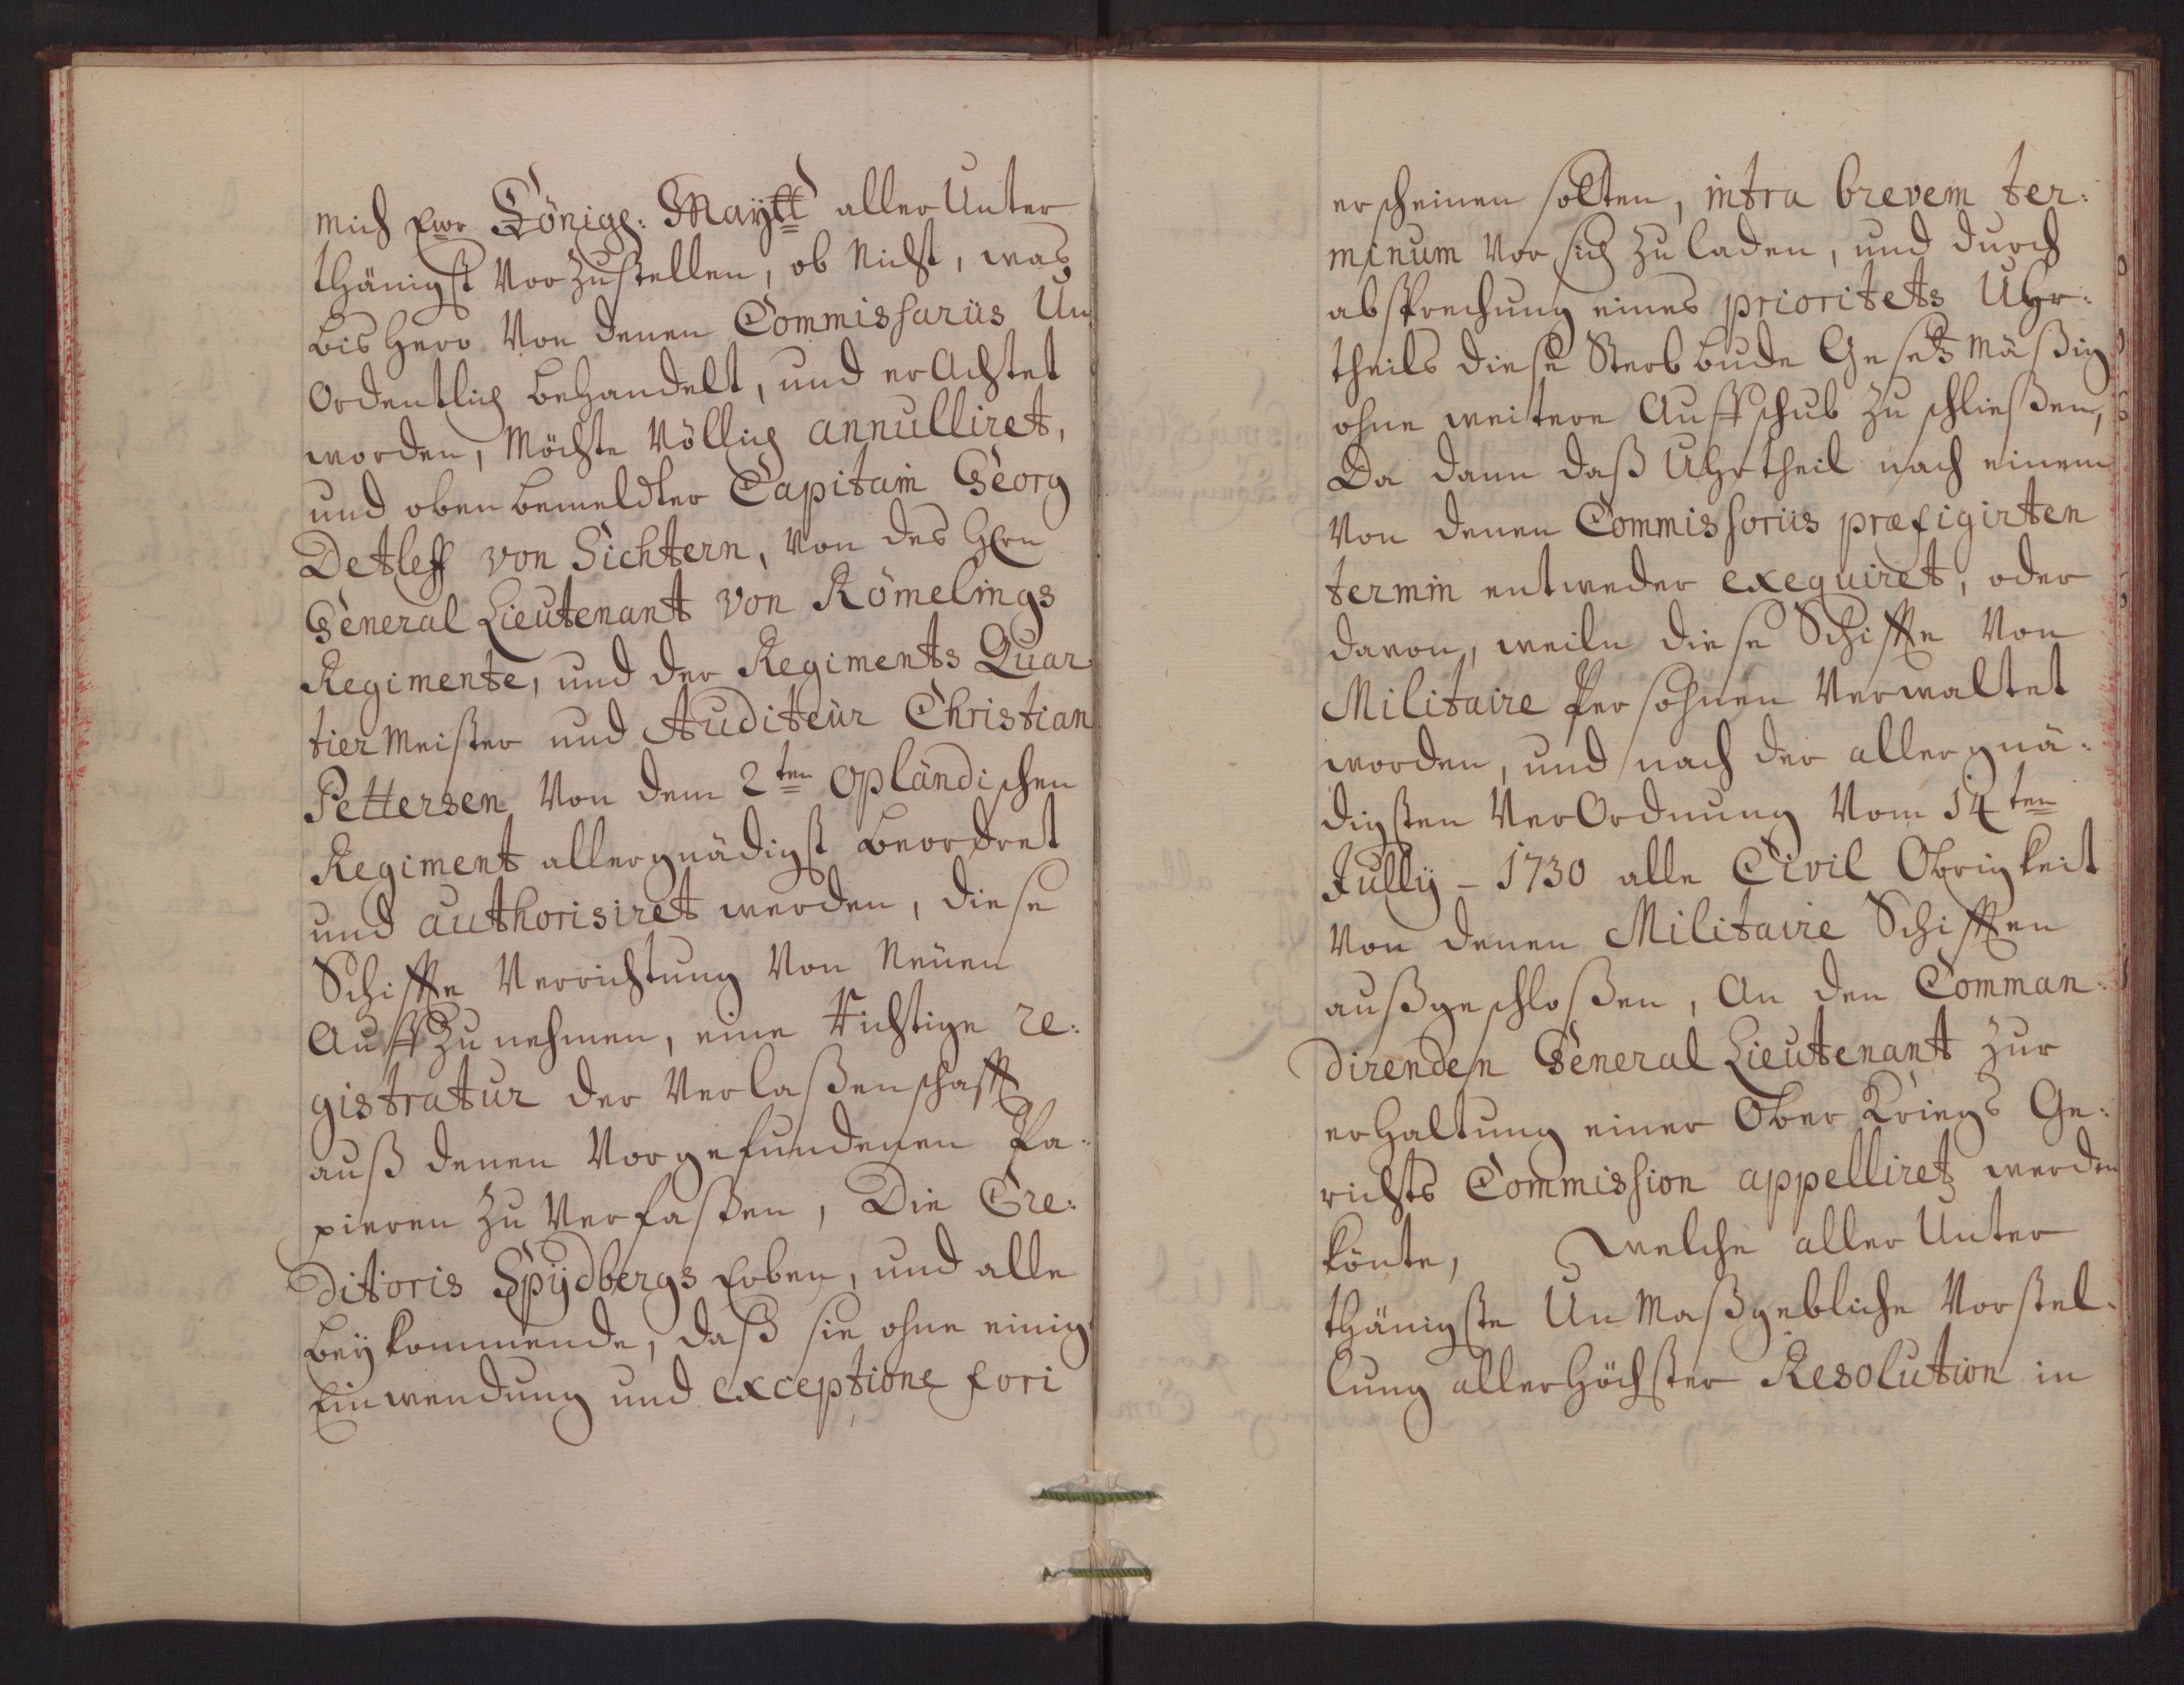 mich Ewr Königl: Maytt aller Unter
thänigst vorzustellen, ob nicht, was
bishero von denen Commissariis Un
ordentlich behandelt, und erachtet
worden, möchte völlig annulliret,
und obenbemeldter Capitain Georg
Detleff von Sichtern, von des Hℓrn
General Lieutenant von Römelings
Regimente, und der Regiments Quar
tiermeister und Auditeur Christian
Pettersen von dem 2ten Opländischen
Regiment allergnädigst beordret
und authorisiret werden, diese
Schiffte Verrichtung von neüen
Auffzunehmen, eine richtige re:
gistratur der Verlaßenschafft
auß denen vorgefundenen Pa:
pieren zu verfaßen, Die Cre:
ditoris Spÿdbergs Erben, und alle
beÿkommende, daß sie ohne einig
Einwendung und exceptione fori
erscheinen solten, intra brevem ter:
minum vor sich zu laden, und durch
absprechung eines prioritets Uhr:
theils diese Sterbbude Gesetzmäßig
ohne weitere Auffschub zu schließen,
Da dann daß Uhrtheil nach einem
von denen Commissoriis præfigirten
termin entweder exequiret, oder
davon, weiln diese Schiffte von
Militaire Persohnen verwaltet
worden, und nach der allergnä:
digsten VerOrdnung vom 14ten
Jullÿ - 1730 alle Civil Obrigkeit
von denen Militaire Schifften
außgeschloßen, An den Comman:
direnden General Lieutenant zur
erhaltung einer Ober Kriegs Ge:
richts Commission appelliret werden
könte, welche aller Unter
thänigste UnMaßgebliche Vorstel:
lung allerhöchster Resolution in